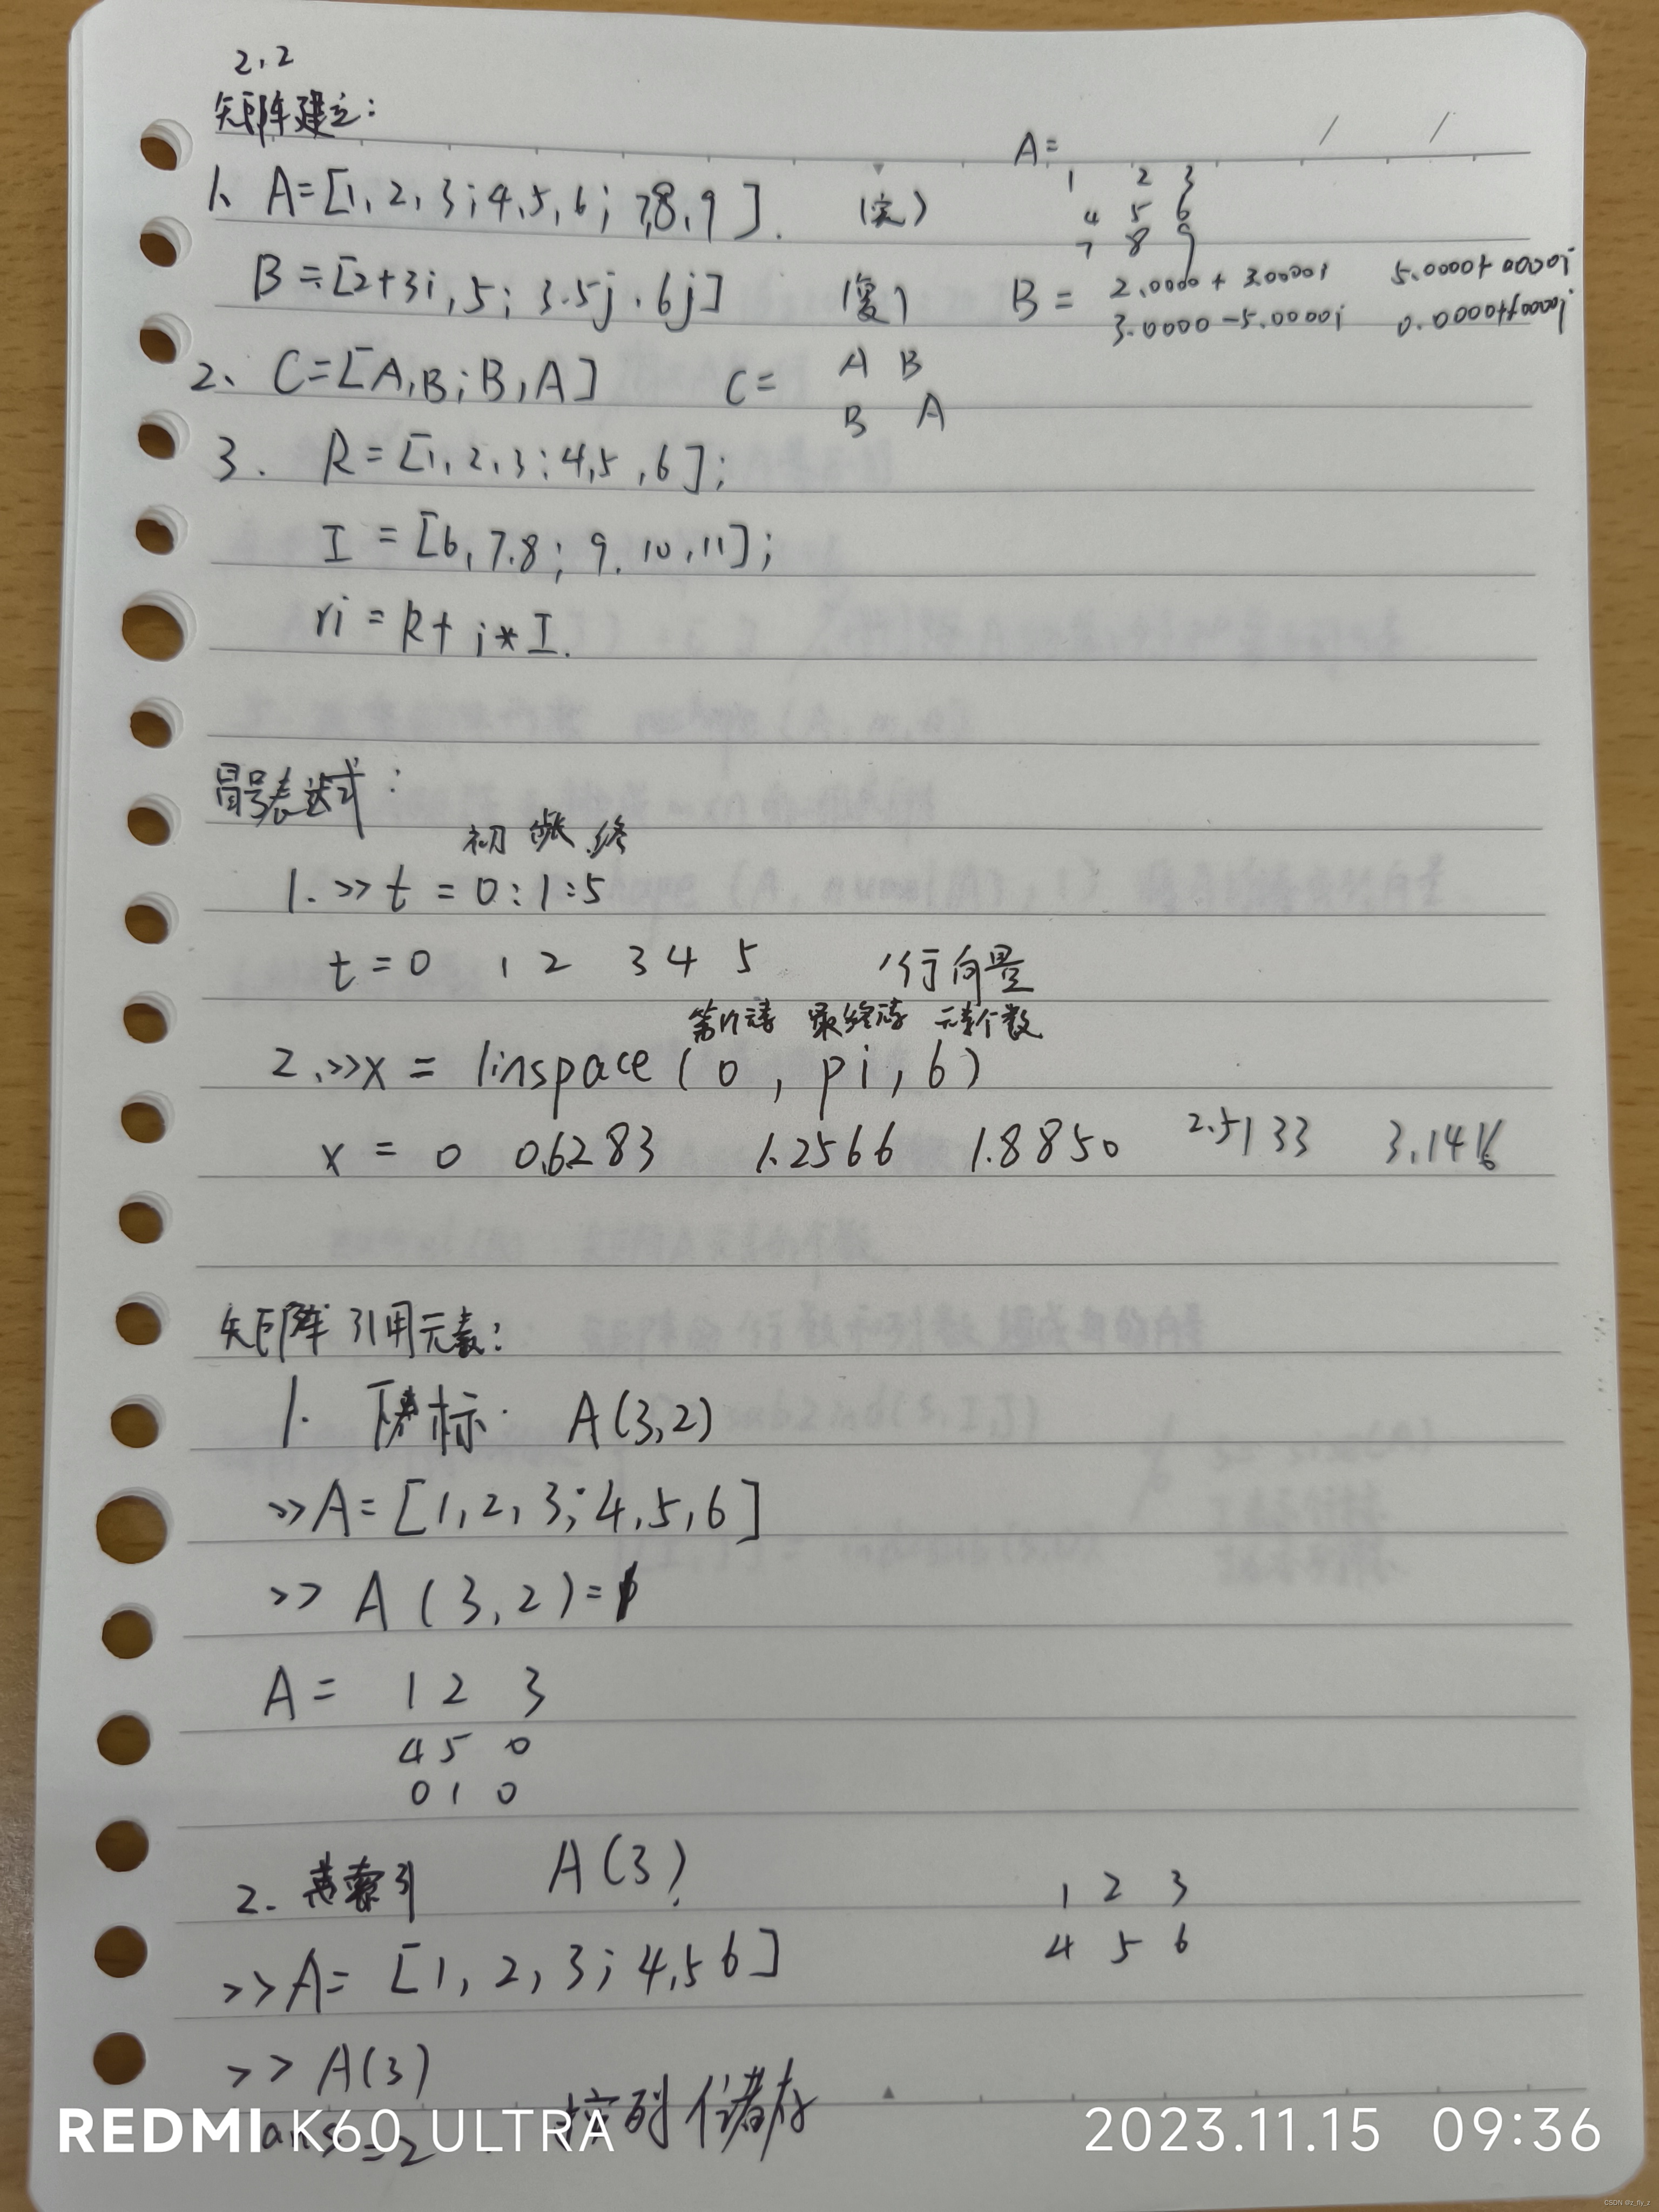 2.2
矩阵建立:
1. A=[1,2,3;4,5,6;7,8,9]. (实) A=
1 2 3
4 5 6
7 8 9
B=[2+3i,5;3.5j.6j] (复) B= 2.0000+3.0000i 5.0000+0000i
3.0000-5.0000i
2、C=[A,B;B,A] C= A B
B A
3. R=[1,2,3;4,5,6];
I=[6,7.8;9.10,11];
ri=R+i*I.
冒号表达式:
初 步长 终
1.>>t=0:1:5
t=0 1 2 3 4 5 行向量
第1元素 最终元素 元素个数
2.>>x=linspace(0,pi,6)
x=0 0.6283 1.2566 1.8850 2.5133 3.1416
矩阵引用元素:
1. 下标: A(3,2)
>>A=[1,2,3;4,5,6]
>>A(3,2)=1
A= 1 2 3
4 5 0
0 1 0
2. 索引 A(3)
1 2 3
4 5 6
>>A=[1,2,3;4,5 6]
>>A(3)
ans=2 按列储存
REDMI K60 ULTRA 2023.11.15 09:36
CSDN @z_fly_z